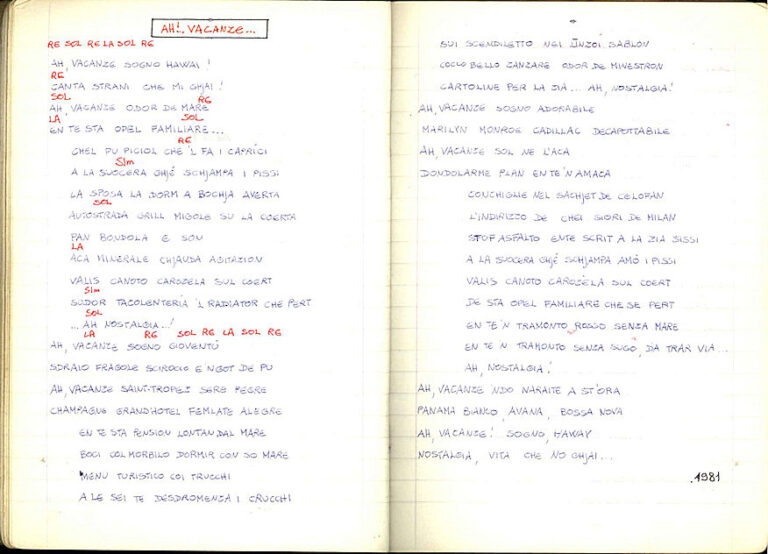 AH!, VACANZE...
RE SOL RE LA SOL RE
AH, VACANZE SOGNO HAWAI!
RE
CANTA STRANI CHE MI GHJAI!
SOL RE
AH, VACANZE ODOR DE MARE
LA SOL
EN TE STA OPEL FAMILIARE...
RE
CHEL PU PICIOL CHE 'L FA I CAPRICI
SIm
A LA SUOCERA GHJÉ SCHJAMPA I PISSI
LA SPOSA LA DORM A BOCHJA AVERTA
SOL
AUTOSTRADA GRILL MIGOLE SU LA COERTA
PAN BONDOLA E SON
LA
ACA MINERALE CHJAUDA AGITAZION
VALIS CANOTO CAROZELA SUL COERT
SIm
SUDOR TACOLENTERIA 'L RADIATOR CHE PERT
SOL
... AH NOSTALGIA..!
LA RE SOL RE LA SOL RE
AH, VACANZE SOGNO GIOVENTÚ
SDRAIO FRAGOLE SCIROCIO E NGOT DE PU
AH, VACANZE SAINT-TROPEZ SERE PEGRE
CHAMPAGNE GRANDHOTEL FEMLATE ALEGRE
EN TE STA PENSION LONTAN DAL MARE
BOCI COL MORBILO DORMIR CON SO MARE
MENU TURISTICO COI TRUCCHI
A LE SEI TE DESDROMENZA I CRUCCHI
SUI SCENDILETTO NEI ÚNZOI SABLON
COCLO BELLO ZANZARE ODOR DE MINESTRON
CARTOLINE PER LA ZIA... AH, NOSTALGIA!
AH, VACANZE SOGNO ADORABILE
MARILYN MONROE CADILLAC DECAPOTTABILE
AH, VACANZE SOL NE L'ACA
DONDOLARME PLAN EN TE 'N AMACA
CONCHIGLIE NEL SACHJET DE CELOFAN
L'INDIRIZZO DE CHEI SIORI DE MILAN
STOF ASFALTO ENTE SCRIT A LA ZIA SISSI
A LA SUOCERA GHJÉ SCHJAMPA AMÓ I PISSI
VALIS CANOTO CAROZELA SUL COERT
DE STA OPEL FAMILIARE CHE SE PERT
EN TE 'N TRAMONTO ROSSO SENZA MARE
EN TE 'N TRAMONTO SENZA SUGO, DA TRAR VIA...
AH, NOSTALGIA!
AH, VACANZE 'NDO NARAITE A ST'ORA
PANAMA BIANCO, AVANA, BOSSA NOVA
AH, VACANZE! SOGNO, HAWAY
NOSTALGIA, VITA CHE NO GHJAI...
.1981